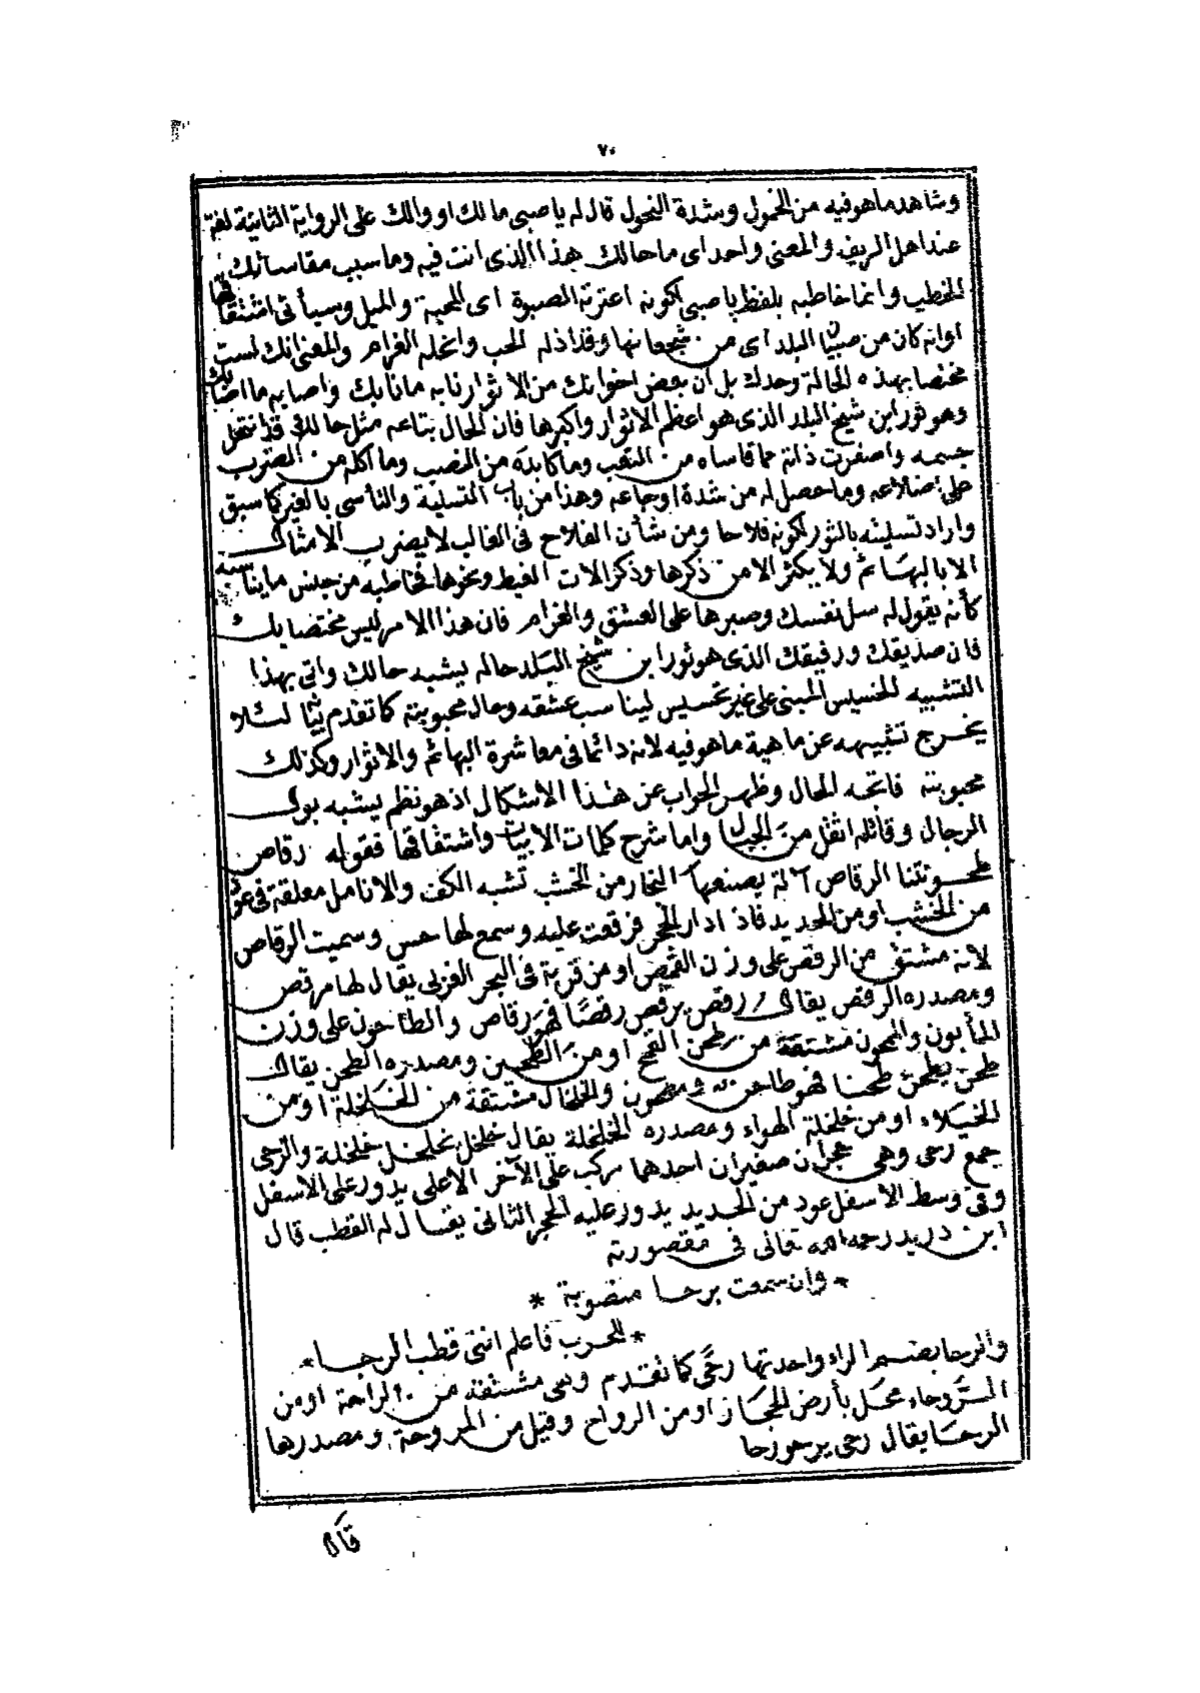 ٧٠
وشاهد ما هو فيه من الخمول وشدة النحول قال له يا صبى مالك او والك على الرواية الثانية لغة
عند اهل الريف والمعنى واحد اى ما حالك هذا الذى انت فيه وما سبب مقاساتك لهذا
الخطيب وانما خاطبه بلفظ يا صبى لكونه اعترته الصبوة اى المحبة والميل وسيأتى اشتقاقها
او انه كان من صبيان البلد اى من شجعانها وقد اذله الحب وانحله الغرام والمعنى انك لست
مختصا بهذه الحالة وحدك بل ان بعض اخوانك من الاثوار نابه ما نابك واصابه ما اصابك
وهو ثور ابن شيخ البلد الذى هو اعظم الاثوار واكبرها فان الحال بتاعه مثل حالك قد انتحل
جسمه واصفرت ذاته مما قاساه من التعب وما كابده من النصب وما اكله من الضرب
على اضلاعه وما حصل له من شدة اوجاعه وهذا من باب التسلية والتأسى بالغير كما سبق
واراد تسليته بالثور لكونه فلاحا ومن شأن الفلاح فى الغالب لا يضرب الامثال
الا بالبهائم ولا يكثر الا من ذكرها وذكر الات الغيط ونحوها فخاطبه من جنس ما يناسبه
كأنه يقول له سل نفسك وصبرها على العشق والغرام فان هذا الامر ليس مختصا بك
فان صديقك ورفيقك الذى هو ثور ابن شيخ البلد حاله يشبه حالك واتى بهذا
التشبيه الخسيس المبنى على غير تحسيس ليناسب عشقه وحال محبوبته كما تقدم بيتا لئلا
يخرج تشبيهه عن ماهية ما هو فيه لانه دائما فى معاشرة البهائم والاثوار وكذلك
محبوبته فاتجه الحال وظهر الجواب عن هذا الاشكال اذ هو نظم يشبه بول
الرجال وقائله اثقل من الجبال واما شرح كلمات الابيات واشتقاقها فقوله رقاص
طحونتنا الرقاص آلة يصنعها النجار من الخشب تشبه الكف والانامل معلقة فى عود
من الخشب او من الحديد فاذا دار الحجر فرقعت عليه وسمع لها حس وسميت الرقاص
لانه مشتق من الرقص على وزن القمص او من قرية فى البحر الغربى يقال لها مرقص
ومصدره الرقص يقال رقص يرقص رقصا فهو رقاص والطاحون على وزن
المأبون والمجون مشتقة من طحن القمح او من الطحين ومصدره الطحن يقال
طحن يطحن طحنا فهو طاحن ومطحون والخلخال مشتقة من الخلخلة او من
الخيلاء او من خلخلة الهواء ومصدره الخلخلة يقال خلخل يخلخل خلخلة والرحى
جمع رحى وهى حجران صغيران احدهما مركب على الآخر الاعلى يدور على الاسفل
وفى وسط الاسفل عود من الحديد يدور عليه الحجر الثانى يقال له القطب قال
ابن دريد رحمه الله تعالى فى مقصورته
* وان سمعت برحا منضوبة *
* للحرب فاعلم اننى قطب الرحا *
والرحا بضم الراء واحدتها رحى كما تقدم وهى مشتقة من الراحة او من
الروحاء محل بأرض الحجاز او من الرواح وقيل من المروحة ومصدرها
الرحا يقال رحى يرحو رحا
قال